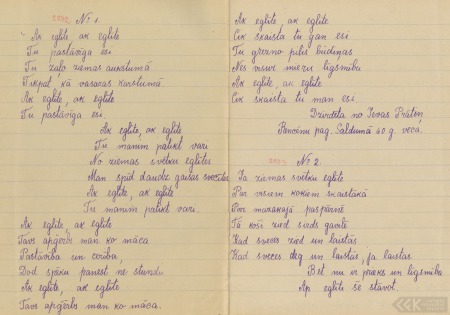 № 1.
Ak eglīte, ak eglīte
Tu pastāvīga esi
Tu zaļo ziemas aukstumā
Tikpat kā vasaras karstumā
Ak eglīte, ak eglīte
Tu pastāvīga esi.
Ak eglīte, ak eglīte
Tu manim palikt vari
No ziemas svētku eglītes
Man spīd daudz gaišas svecītes
Ak eglīte, ak eglīte
Tu manim palikt vari.
Ak eglīte, ak eglīte
Tavs apģērbs man ko māca
Pastāvība un cerība,
Dod spēku panest ne stundu
Ak eglīte, ak eglīte
Tavs apģērbs man ko māca.
Ak eglīte, ak eglīte
Cik skaista tu gan esi
Tu grezno pilis būdiņas
Nes visur mieru līgsmību
Ak eglīte, ak eglīte
Cik skaista tu man esi.
Dzirdēta no Ievas Prāten,
pag. Saldumā 60 g. vecā.
№ 2.
Ja ziemas svētku eglīte
Par visiem kokiem skaistākā
Par mazākajā paspārnē
Tā koši zied svēds gaulē
Kad sveces zied un laistās
Kad sveces deg un laistās, ja laistās
Bet nu ar prieks un līgsmība
Ap eglīti še stāvot.